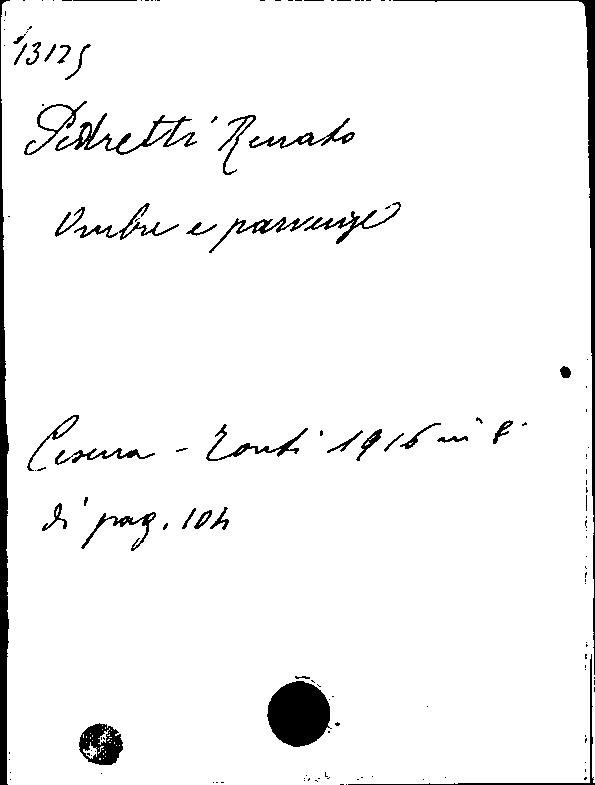 13125
Pedretti Renato
Ombre e parvenze
Cesena - Tonti 1916 in 8°
di pag. 104